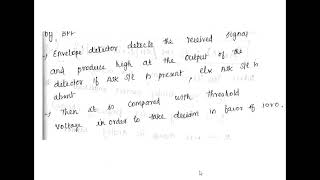 by BPF
→ Envelope detector detects the received signal
and produce high at the output of the
detector if ASK sig is present, else ASK sig is
absent
→ Then it is compared with threshold
voltage in order to take decision in favor of 1 or 0.